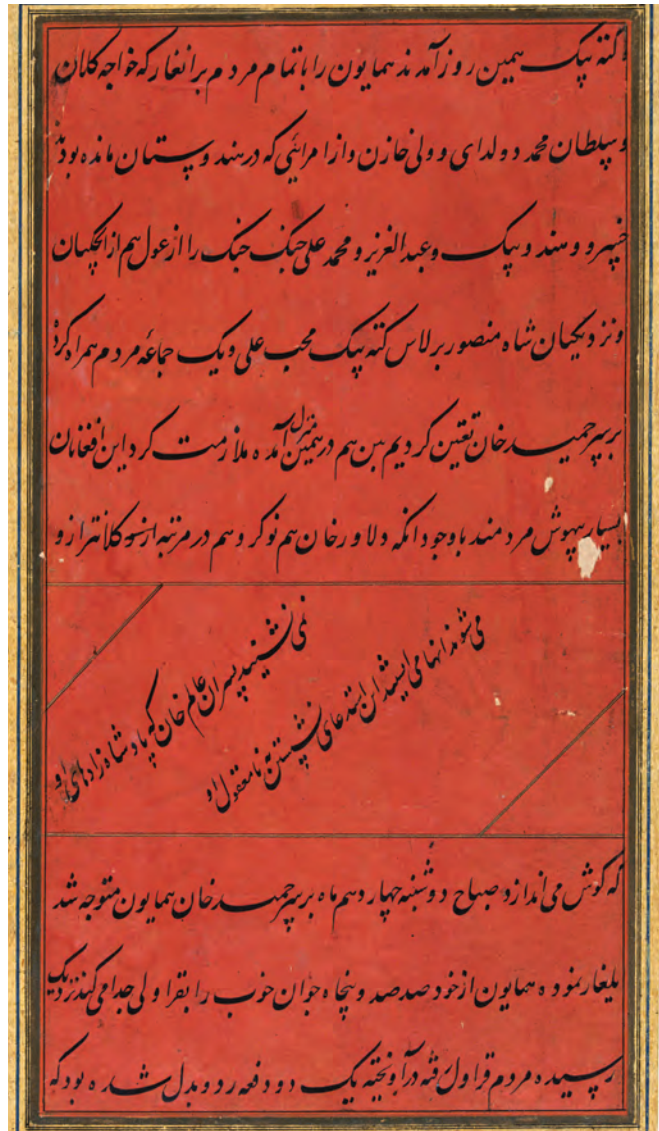 کته بیک همین روز آمدند همایون را با تمام مردم برانغار که خواجه کلان
و سلطان محمد دولدای و ولی خازن و از امرائی که در هندوستان مانده بودند
خسرو و هندو بیک و عبدالعزیز و محمد علی جنک جنک را از غول هم از ایچکیان
و نزدیکیان شاه منصور برلاس کته بیک محب علی و یک جماعه مردم همراه کرده
بر سر حمید خان تعین کردیم بین هم در همین منزل آمده ملازمت کرد این افغانان
بسیار بیهوش مردمند با وجود انکه دلاور خان هم نوکر و هم در مرتبه از و کلانتر ازو
نمی نشیند پسران عالم خان که پادشاه زادهای او
می شوند انها می ایستند این استدعای نشستن به نامعقول او
که گوش می اندازد صباح دوشنبه چهاردهم ماه بر سر حمید خان همایون متوجه شد
یلغار نموده همایون از خود صد صد و پنجاه جوان خوب را بقراولی جدا می کند نزدیک
رسیده مردم قراول رفته در آویخته یک دو دفعه رد و بدل شده بود که